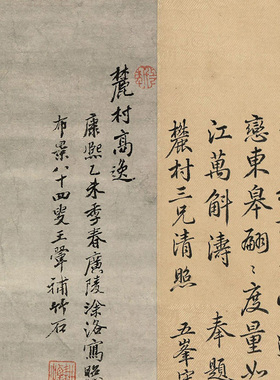 戀東皋翩〻度量如
江萬斛濤　奉題
麓村三兄清照　五峯
麓村高逸
康熙乙未季春廣陵涂洛寫照
布景八十四叟王翬補竹石